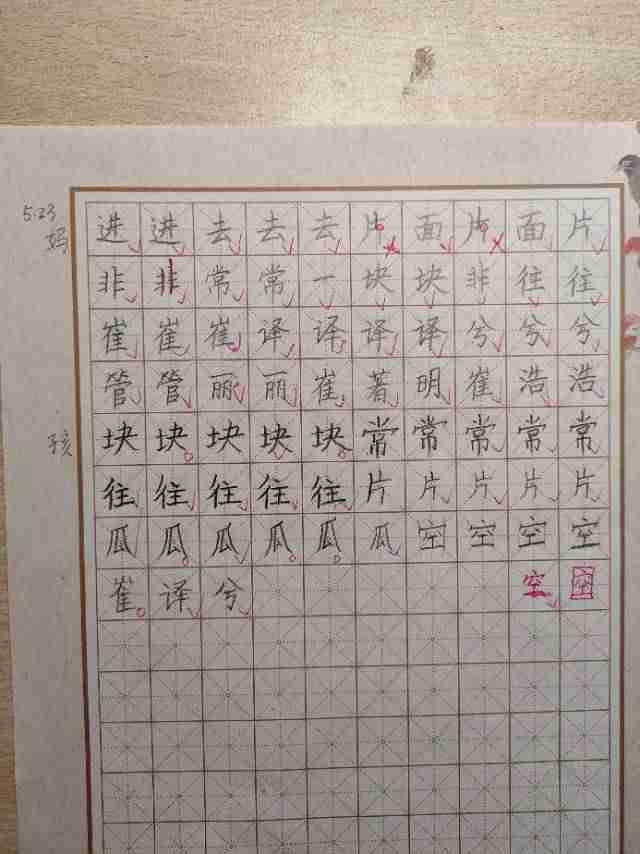 5.23
妈
进进去去去片面片面片
非非常常一块块非往往
崔崔崔译译译译兮兮兮
管管丽丽崔著明崔浩浩
孩
块块块块块常常常常常
往往往往往片片片片片
瓜瓜瓜瓜瓜瓜空空空空
崔译兮空空